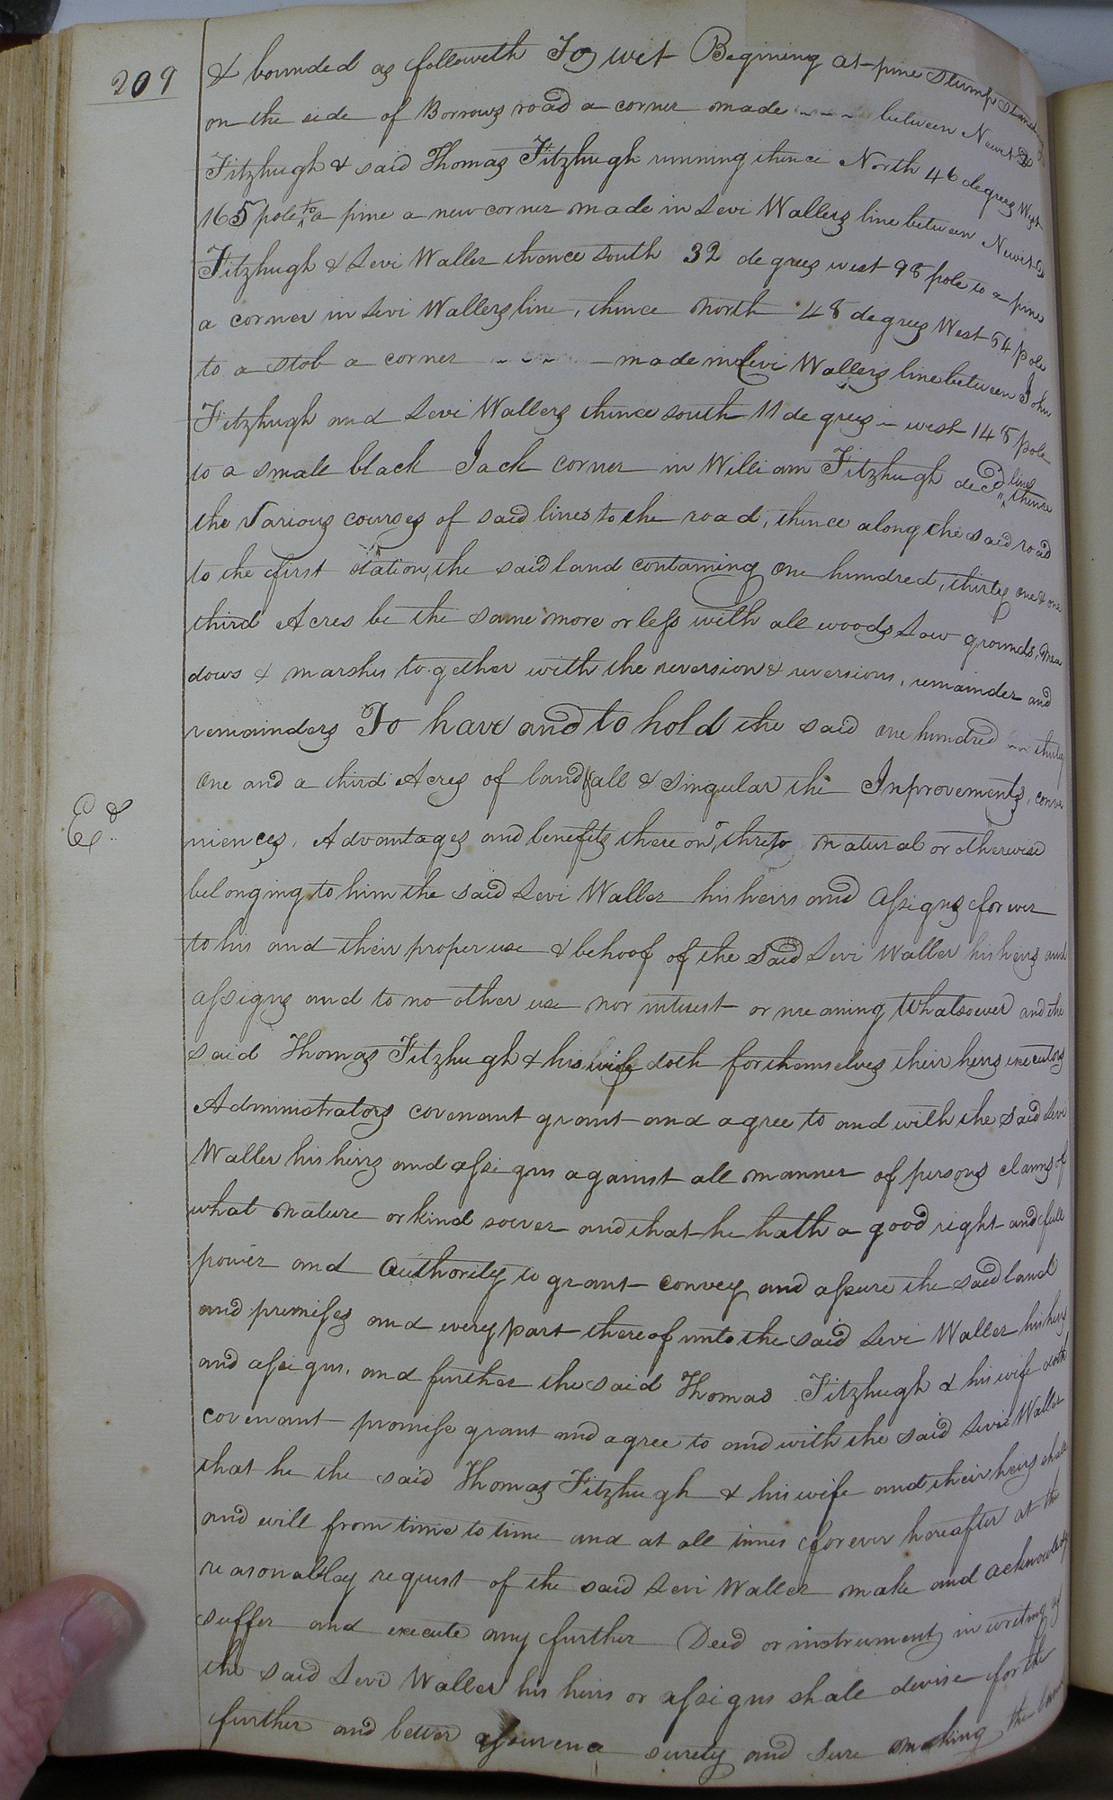 209
& bounded as followeth To wit Begining at pine stump standing
on the side of Borrows road a corner made between Newit D
Fitzhugh & said Thomas Fitzhugh running thence North 46 degrees West
165 pole to a pine a new corner made in Levi Wallers line between Newit D
Fitzhugh & Levi Waller thence South 32 degrees west 98 pole to a pine
a corner in Levi Wallers line, thence North 48 degrees West 54 pole
to a stob a corner made in Levi Wallers line between John
Fitzhugh and Levi Wallers thence south 11 degrees west 148 pole
to a small black Jack corner in William Fitzhugh decd line thence
the Various courses of said lines to the road, thence along the said road
to the first station, the said land containing one hundred, thirty one & one
third Acres be the same more or less with all woods Low grounds, mea
dows & marshes together with the reversion & reversions, remainder and
remainders To have and to hold the said one hundred thirty
one and a third Acres of land all & singular the Inprovements, conve
Ed
niences, Advantages and benefits there on, threto natural or otherwise
belonging to him the said Levi Waller his heirs and Assigns forever
to his and their proper use & behoof of the said Levi Waller his heirs and
assigns and to no other use nor interest or meaning whatsoever and the
said Thomas Fitzhugh & his wife doth for themselves their heirs executors
Administrators covenant grant and agree to and with the said Levi
Waller his heirs and assigns against all manner of persons claims of
what nature or kind soever and that he hath a good right and full
power and Authority to grant convey and assure the said land
and premises and every part thereof unto the said Levi Waller his heirs
and assigns, and further the said Thomas Fitzhugh & his wife doth
covenant promise grant and agree to and with the said Levi Waller
that he the said Thomas Fitzhugh & his wife and their heirs shall
and will from time to time and at all times forever hereafter at the
reasonablay request of the said Levi Waller make and acknowledg
suffer and execute any further Deed or instrument in writing as
the said Levi Waller his heirs or assigns shall devise for the
further and better assurence surety and sure making the